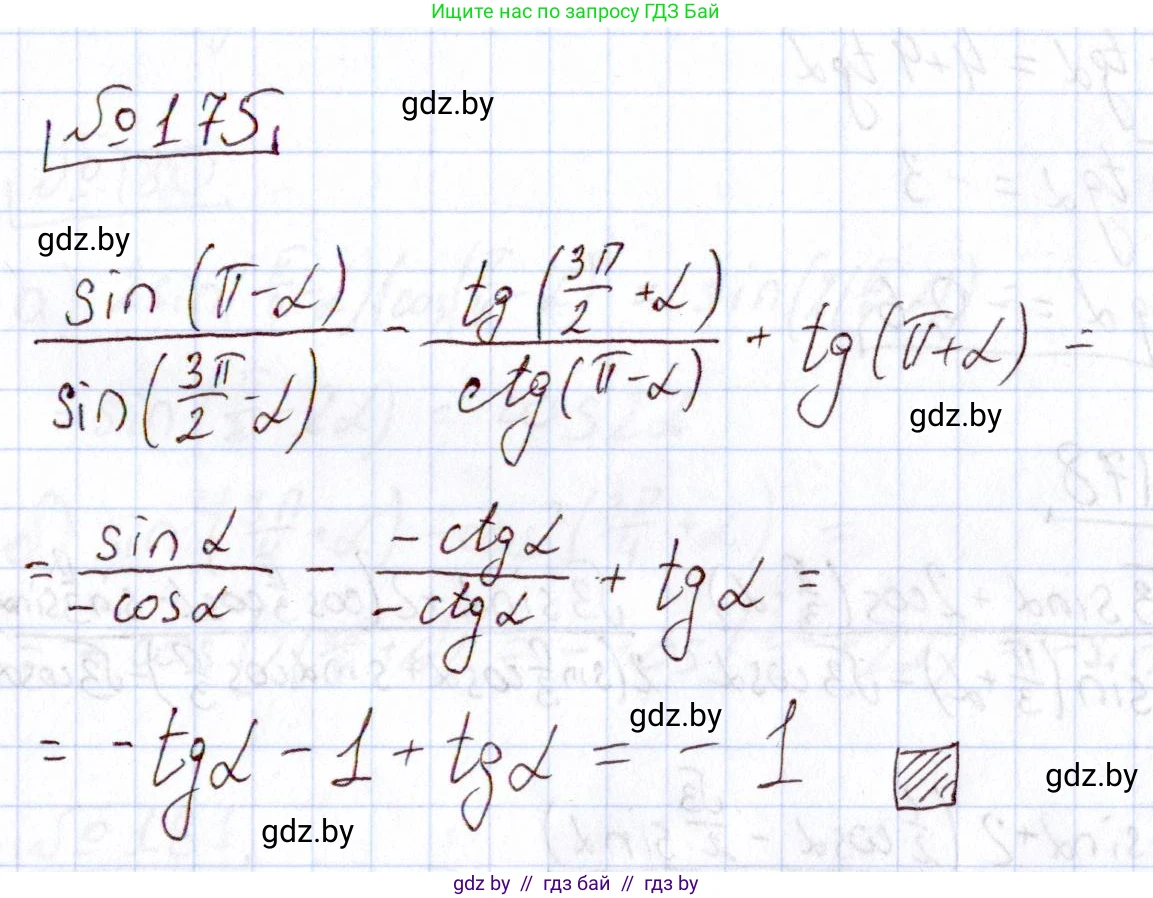 Ищите нас по запросу ГДЗ Бай
№ 175
gdz.by
gdz.by
sin(π-α)/sin(3π/2-α) - tg(3π/2+α)/ctg(π-α) + tg(π+α) =
gdz.by
= sinα/-cosα - -ctgα/-ctgα + tgα =
= -tgα - 1 + tgα = -1
gdz.by
gdz.by
gdz.by
gdz by // гдз бай // гдз by